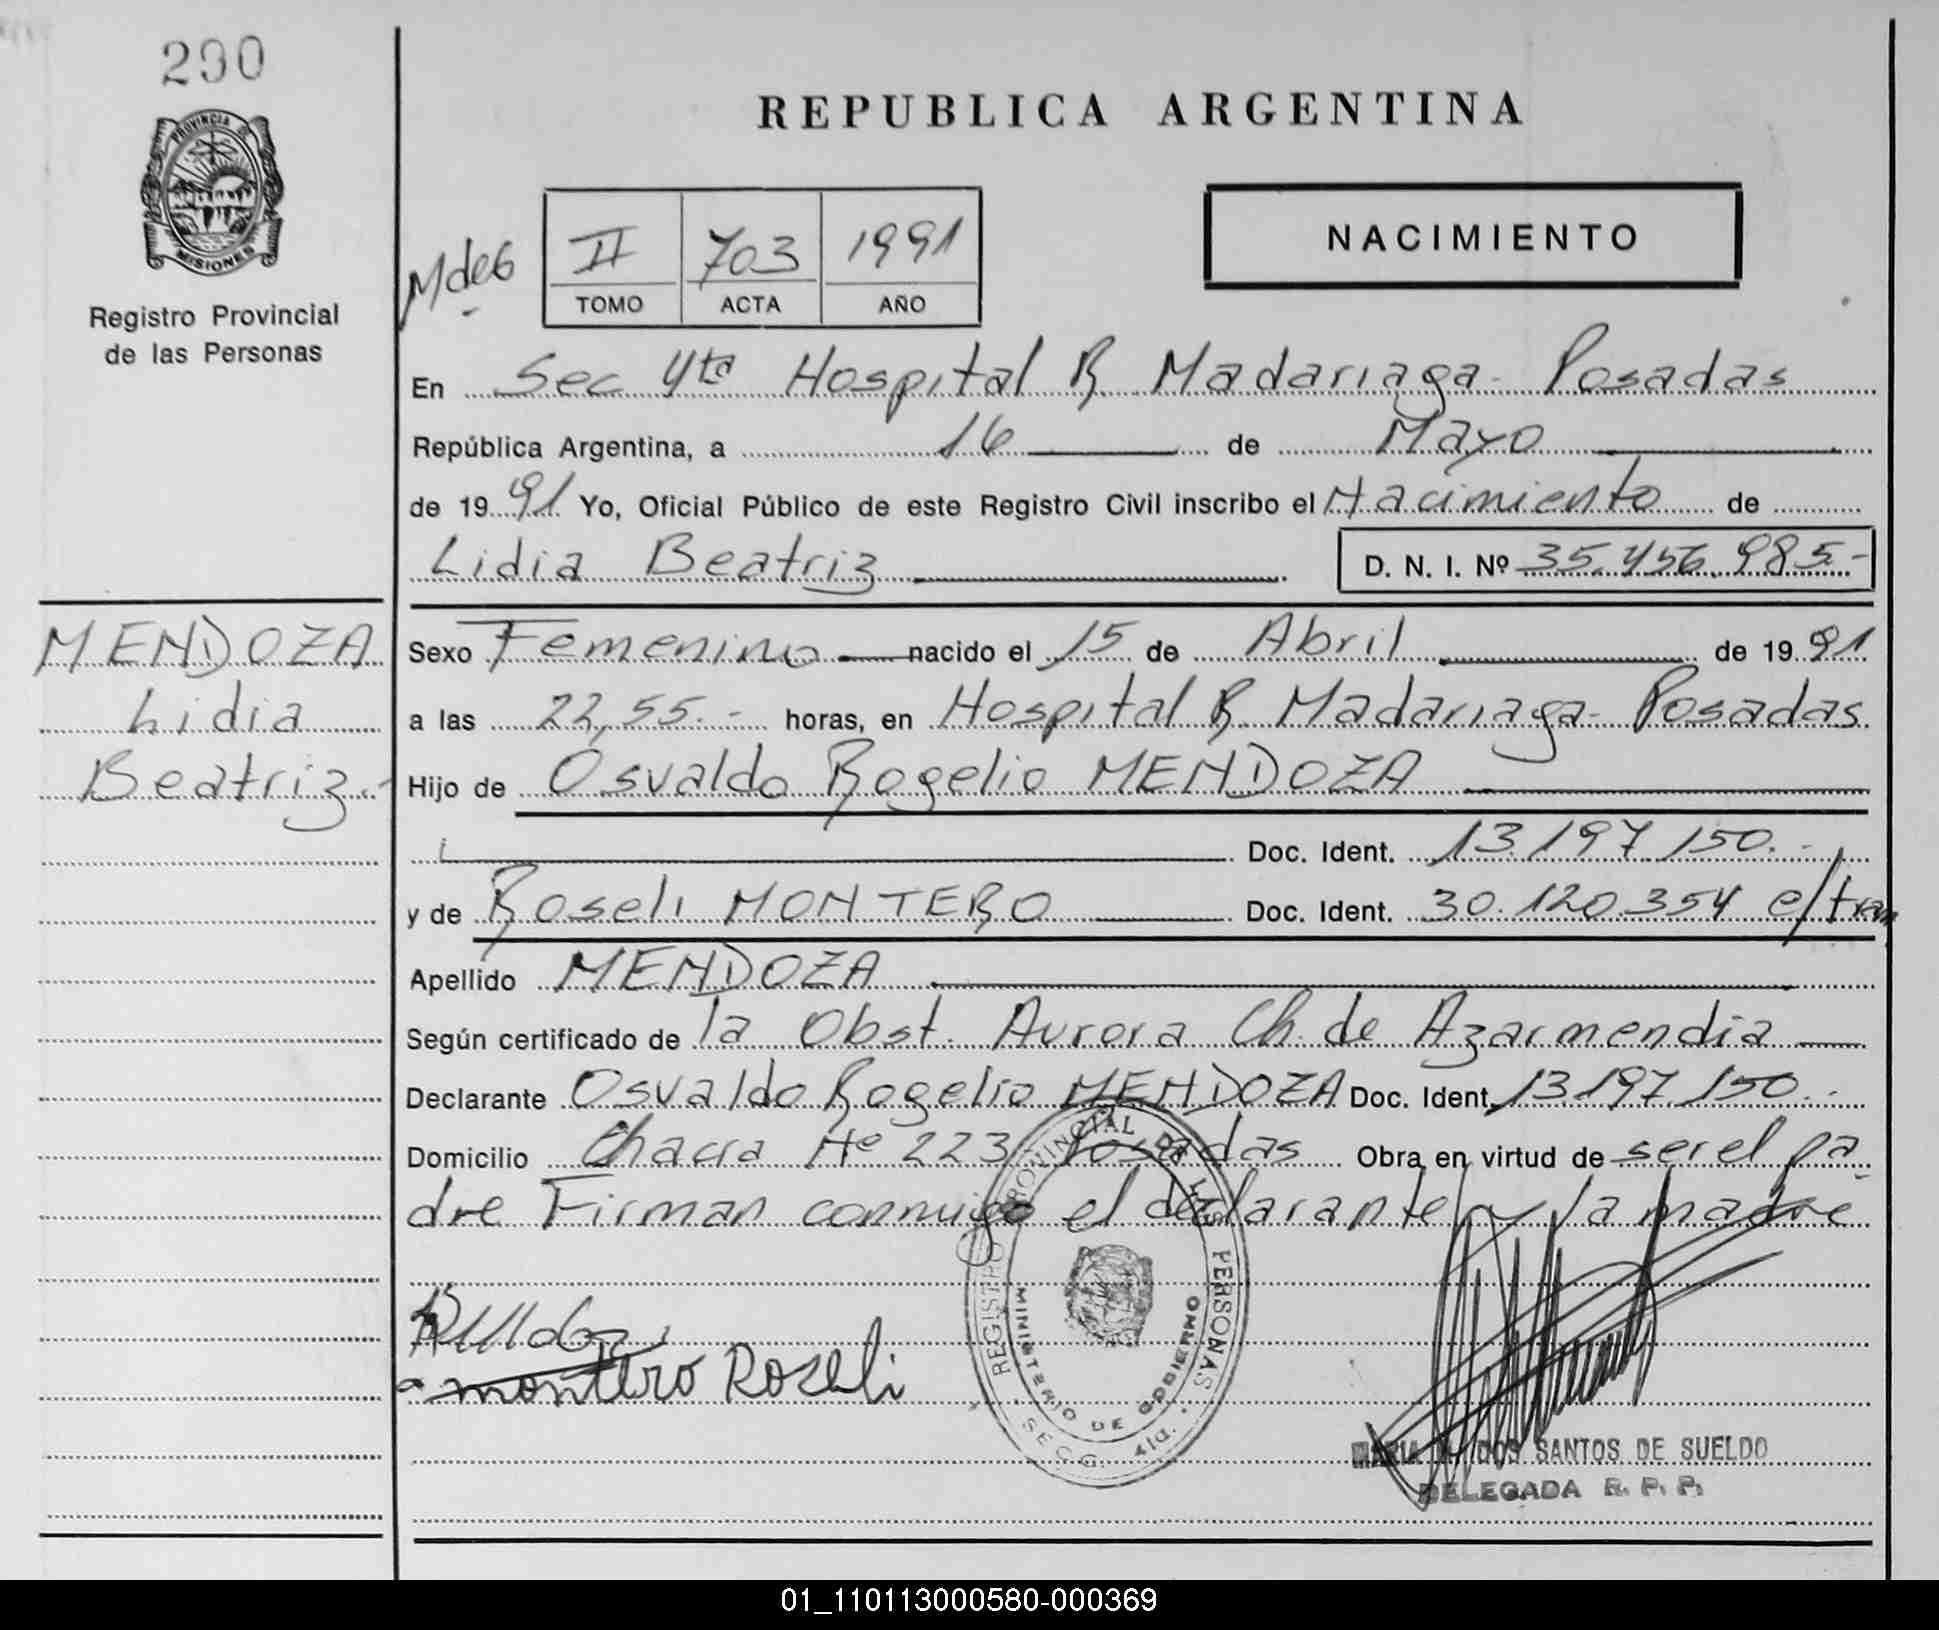 290
PROVINCIA DE
MISIONES
Registro Provincial
de las Personas
REPUBLICA ARGENTINA
NACIMIENTO
II 703 1991
TOMO ACTA AÑO
En Sec 4ta Hospital R Madariaga - Posadas
República Argentina, a 16 de Mayo
de 1991 Yo, Oficial Público de este Registro Civil inscribo el Nacimiento de
Lidia Beatriz D. N. I. Nº 35.456.985.-
MENDOZA
Lidia
Beatriz.-
Sexo Femenino nacido el 15 de Abril de 1991
a las 22,55.- horas, en Hospital R Madariaga - Posadas
Hijo de Osvaldo Rogelio MENDOZA
Doc. Ident. 13.197.150.-
y de Roseli MONTERO Doc. Ident. 30.120.354 e/tram
Apellido MENDOZA
Según certificado de la Obst. Aurora Ch. de Azarmendia
Declarante Osvaldo Rogelio MENDOZA Doc. Ident. 13.197.150.-
Domicilio Chacra Nº 223 Posadas Obra en virtud de ser el pa-
dre Firman conmigo el declarante y la madre
montero Roseli
REGISTRO PROVINCIAL DE LAS PERSONAS
MINISTERIO DE GOBIERNO
SECC. 4ta.
MARIA DOS SANTOS DE SUELDO
DELEGADA R. P. P.
01_110113000580-000369